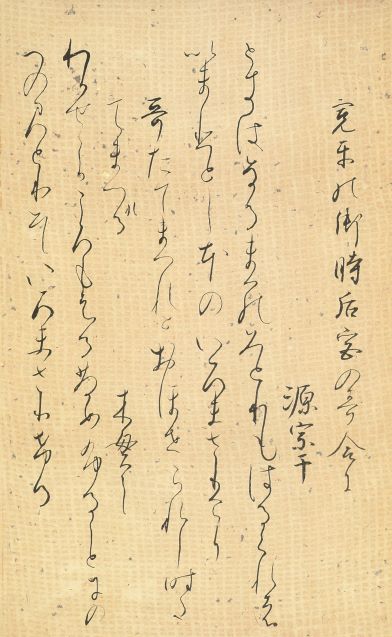 寛平の御時后宮の哥合に
源宗于
ときはなるまつのみとりもはるくれは
いまひとしほのいろまさりけり
哥たてまつれとおほせられし時た
てまつれる
木貫之
わかせこかころもはるさめふることにの
へのみとりそいろまさりける